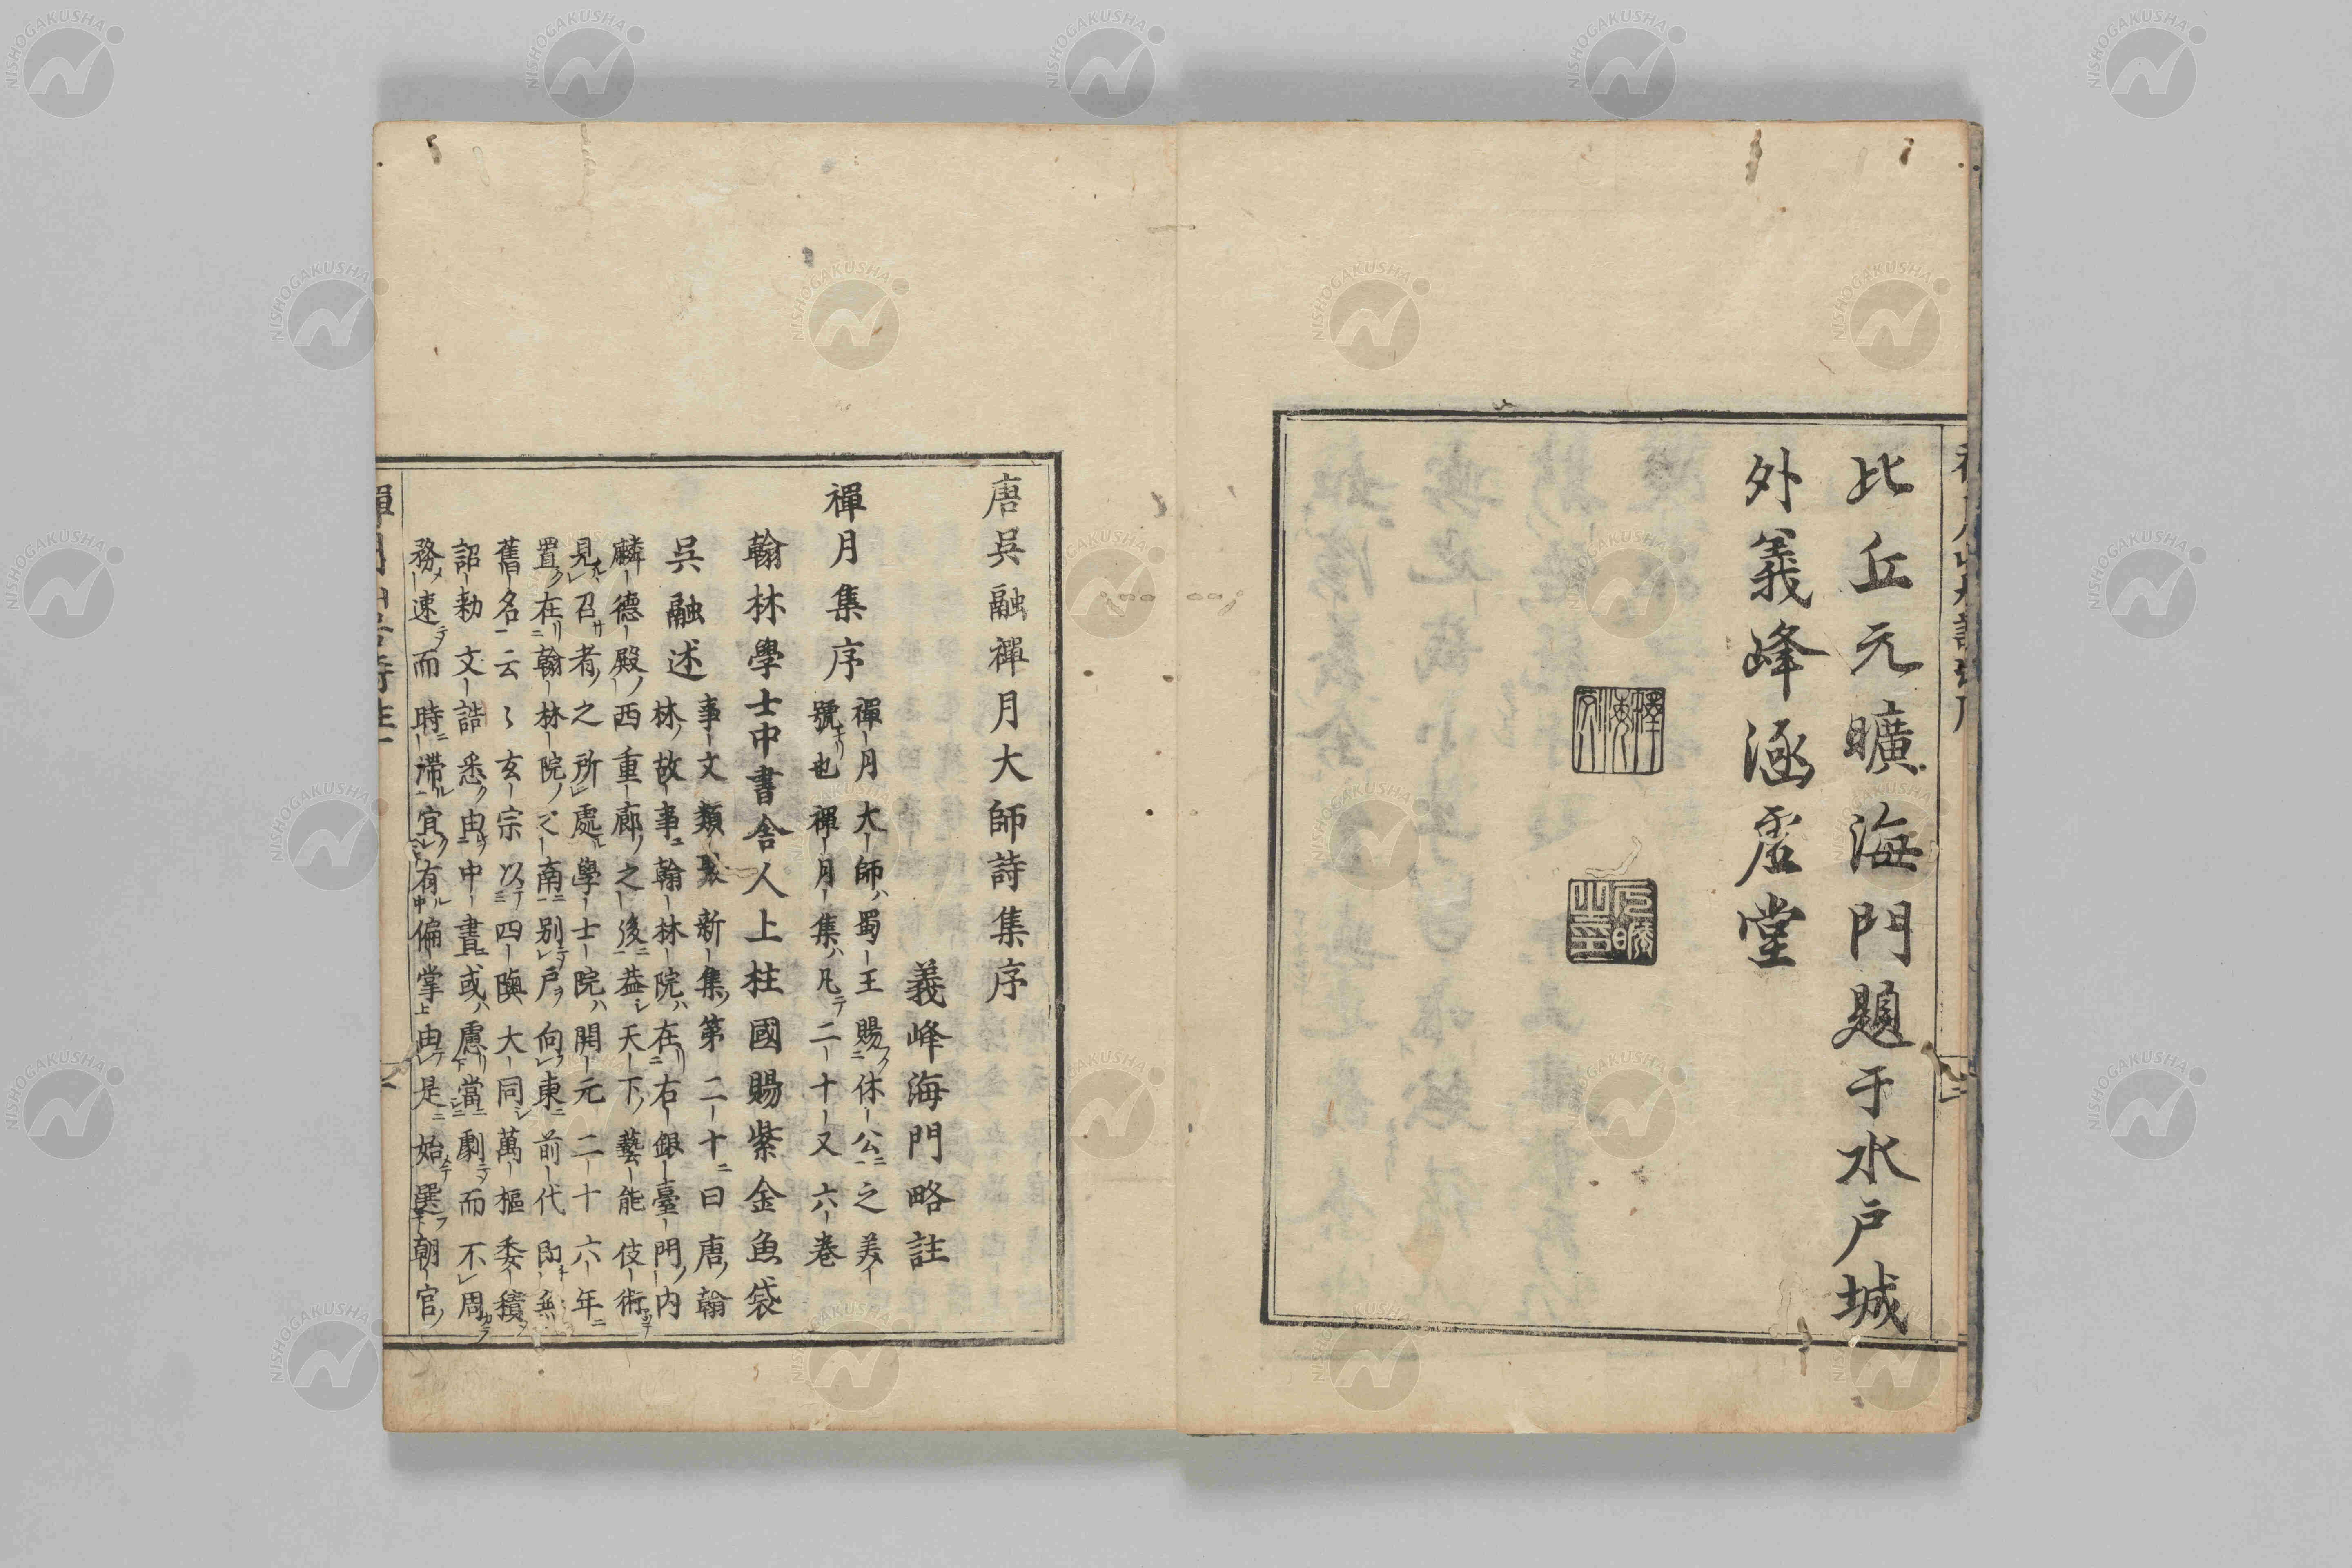 比丘元曠海門題于水戶城
外義峰涵虛堂
唐吳融禪月大師詩集序
義峰海門略註
禪月集序
禪月大師ハ蜀王賜フ休公ニ之美
號ナリ也禪月集ハ凡テ二十又六卷
翰林學士中書舍人上柱國賜紫金魚袋
吳融述
事文類聚新集ノ第二十ニ曰唐ノ翰
林ノ故事ニ翰林院ハ在リ右銀臺門ノ內
麟德殿ノ西重廊ノ之後ニ蓋シ天下ノ藝能伎術
見召サ者ノ之所處ル學士院ハ開元二十六年ニ
置ク在リ翰林院ノ之南ニ別戶ヲ向フ東ニ前代即無
舊名云云玄宗以テ四隩大同シ萬樞委積
詔勅文誥悉ク由中書ニ或ハ慮當劇ニ而不周
務速而時ニ滯ル宜ク有ル偏掌由テ是ニ始テ選ヲ朝官ノ
NISHOGAKUSHA